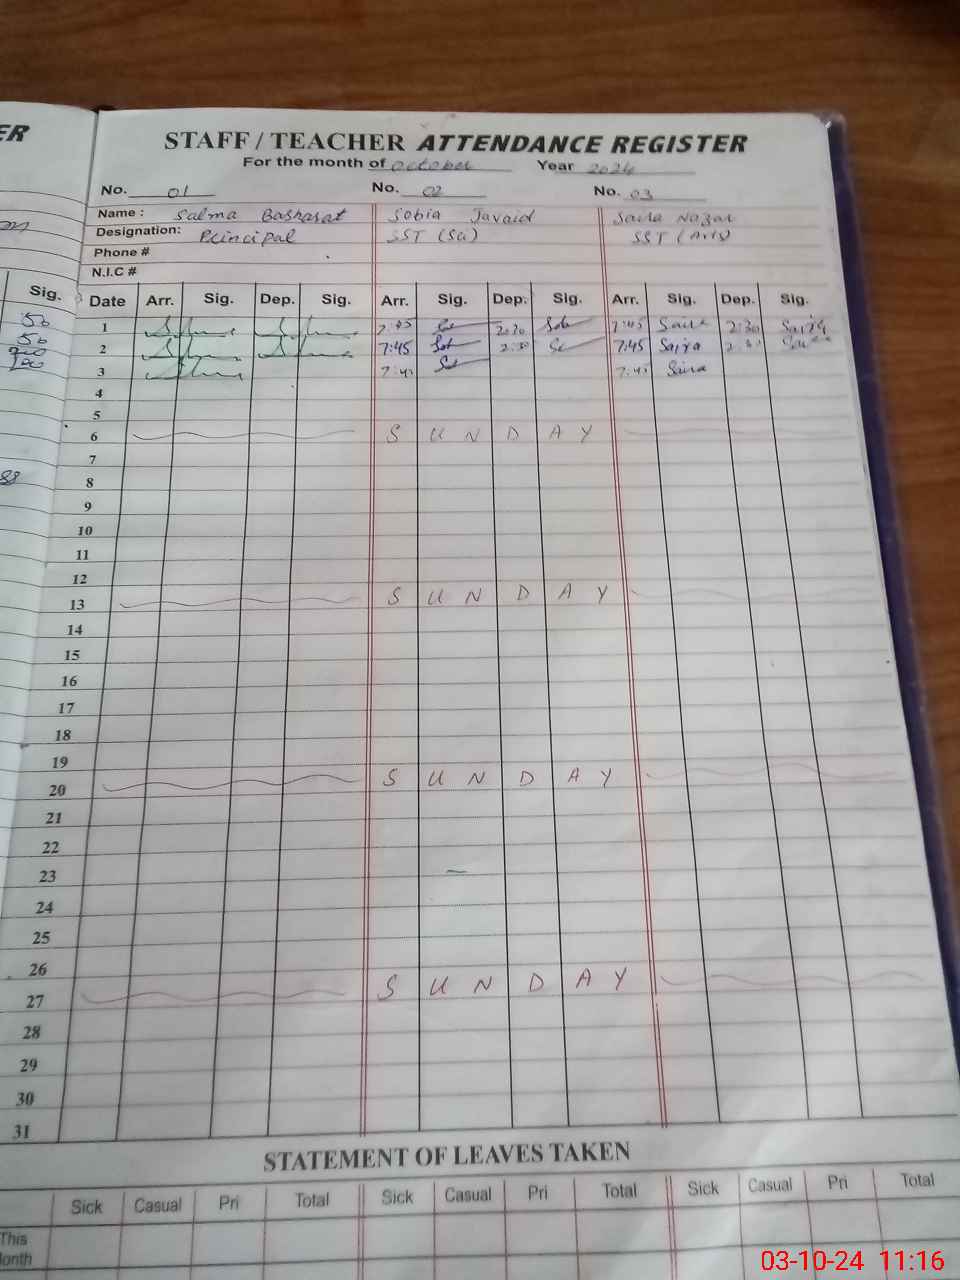 ER
STAFF / TEACHER ATTENDANCE REGISTER
For the month of October Year 2024
No. 01 No. 02 No. 03
Name : Salma Basharat Sobia Javaid Saira Nazar
Designation: Principal SST (Sci) SST (Arts)
Phone #
N.I.C #
Sig. Date Arr. Sig. Dep. Sig. Arr. Sig. Dep. Sig. Arr. Sig. Dep. Sig.
1 7:45 2:30 Sob 7:45 Saira 2:30 Saira
2 7:45 Sob 2:30 7:45 Saira 2:30
3 Saira
4
5
6 S U N D A Y
7
8
9
10
11
12
13 S U N D A Y
14
15
16
17
18
19
20 S U N D A Y
21
22
23
24
25
26
27 S U N D A Y
28
29
30
31
STATEMENT OF LEAVES TAKEN
Sick Casual Pri Total Sick Casual Pri Total Sick Casual Pri Total
This
onth
03-10-24 11:16